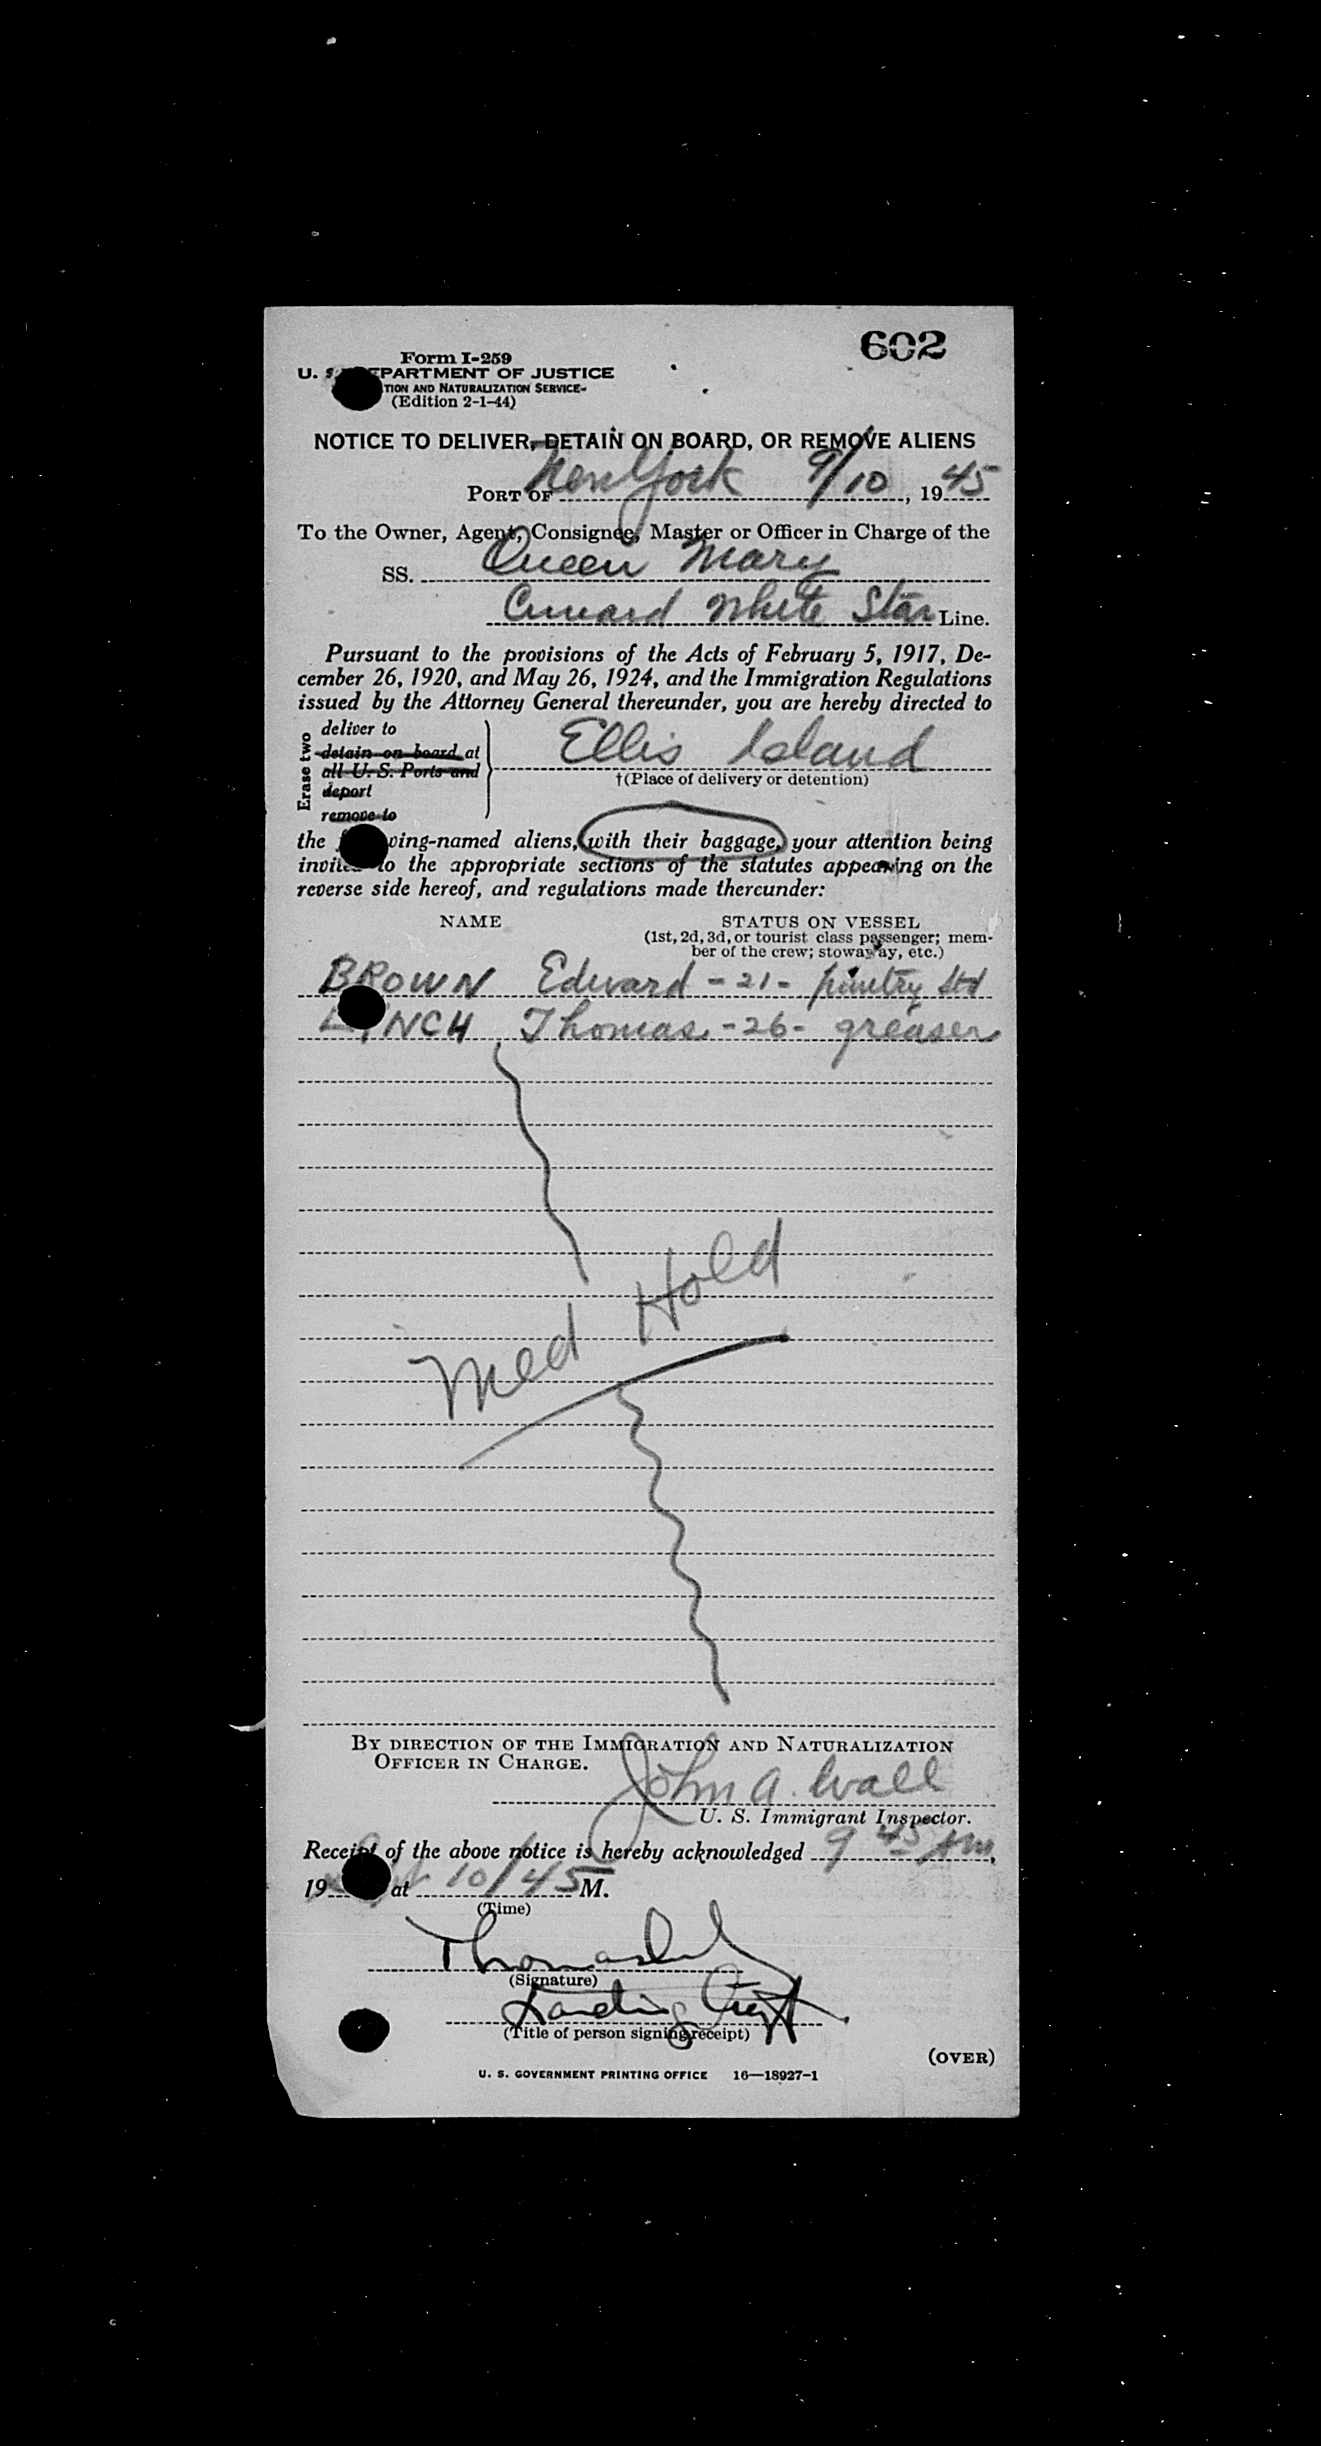 602
Form I-259
U. S. DEPARTMENT OF JUSTICE
TION AND NATURALIZATION SERVICE
(Edition 2-1-44)
NOTICE TO DELIVER, DETAIN ON BOARD, OR REMOVE ALIENS
PORT OF New York 9/10, 1945
To the Owner, Agent, Consignee, Master or Officer in Charge of the
SS. Queen Mary
Cunard White Star Line.
Pursuant to the provisions of the Acts of February 5, 1917, De-
cember 26, 1920, and May 26, 1924, and the Immigration Regulations
issued by the Attorney General thereunder, you are hereby directed to
Erase two
deliver to
detain on board at
all U. S. Ports and
deport
remove to
Ellis Island
†(Place of delivery or detention)
the following-named aliens, with their baggage, your attention being
invited to the appropriate sections of the statutes appearing on the
reverse side hereof, and regulations made thereunder:
NAME STATUS ON VESSEL
(1st, 2d, 3d, or tourist class passenger; mem-
ber of the crew; stowaway, etc.)
BROWN Edward - 21 - pantry Std
LYNCH Thomas - 26 - greaser
Med Hold
BY DIRECTION OF THE IMMIGRATION AND NATURALIZATION
OFFICER IN CHARGE.
John A. Wall
U. S. Immigrant Inspector.
Receipt of the above notice is hereby acknowledged 9 45 AM,
19 at 10/45 M.
(Time)
Thomas
(Signature)
Landing Agt
(Title of person signing receipt)
(OVER)
U. S. GOVERNMENT PRINTING OFFICE 16—18927-1